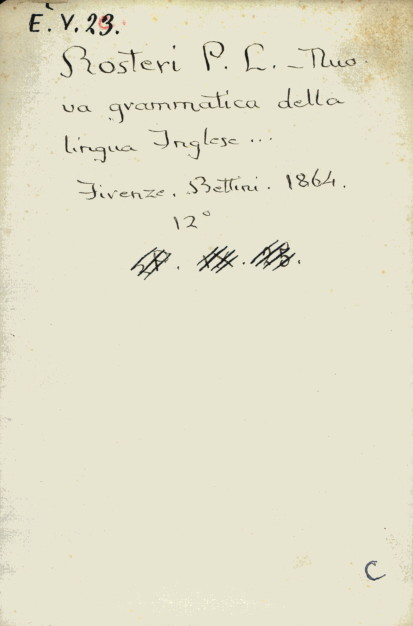 È. V. 23.
Rosteri P. L. - Nuo-
va grammatica della
lingua Inglese ...
Firenze. Bettini. 1864.
12°
C